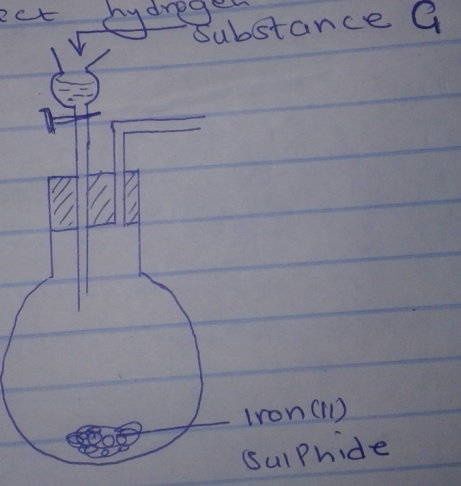 ect hydrogen
Substance G
Iron(11)
Sulphide